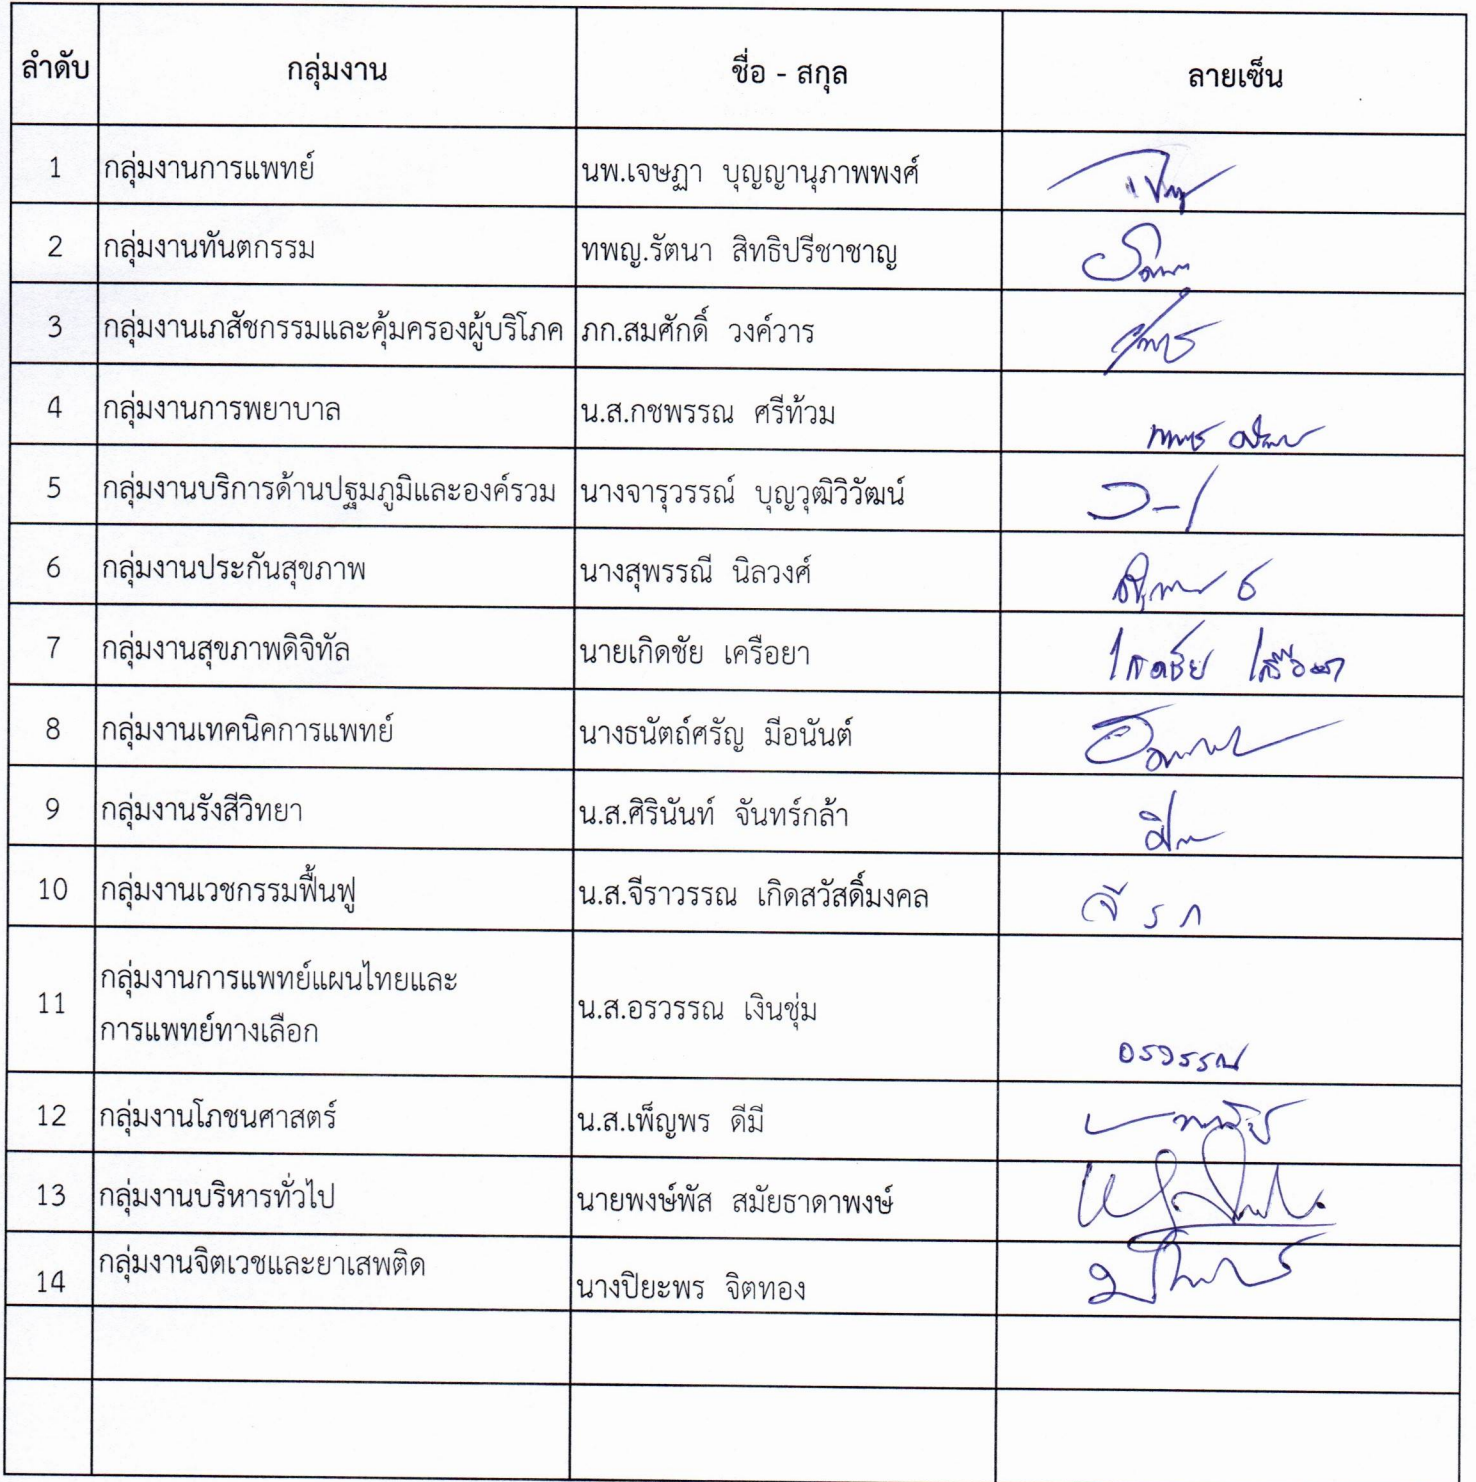 ลำดับ กลุ่มงาน ชื่อ - สกุล ลายเซ็น
1 กลุ่มงานการแพทย์ นพ.เจษฏา บุญญานุภาพพงศ์
2 กลุ่มงานทันตกรรม ทพญ.รัตนา สิทธิปรีชาชาญ
3 กลุ่มงานเภสัชกรรมและคุ้มครองผู้บริโภค ภก.สมศักดิ์ วงค์วาร
4 กลุ่มงานการพยาบาล น.ส.กชพรรณ ศรีท้วม
5 กลุ่มงานบริการด้านปฐมภูมิและองค์รวม นางจารุวรรณ์ บุญวุฒิวิวัฒน์
6 กลุ่มงานประกันสุขภาพ นางสุพรรณี นิลวงศ์
7 กลุ่มงานสุขภาพดิจิทัล นายเกิดชัย เครือยา เกิดชัย เครือยา
8 กลุ่มงานเทคนิคการแพทย์ นางธนัตถ์ศรัญ มีอนันต์
9 กลุ่มงานรังสีวิทยา น.ส.ศิรินันท์ จันทร์กล้า
10 กลุ่มงานเวชกรรมฟื้นฟู น.ส.จีราวรรณ เกิดสวัสดิ์มงคล
กลุ่มงานการแพทย์แผนไทยและ
11 การแพทย์ทางเลือก น.ส.อรวรรณ เงินชุ่ม อรวรรณ
12 กลุ่มงานโภชนศาสตร์ น.ส.เพ็ญพร ดีมี
13 กลุ่มงานบริหารทั่วไป นายพงษ์พัส สมัยธาดาพงษ์
14 กลุ่มงานจิตเวชและยาเสพติด นางปิยะพร จิตทอง